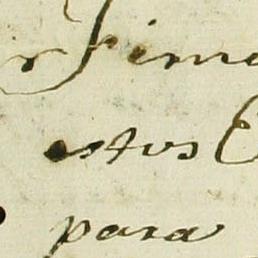 r firma
estos E
para